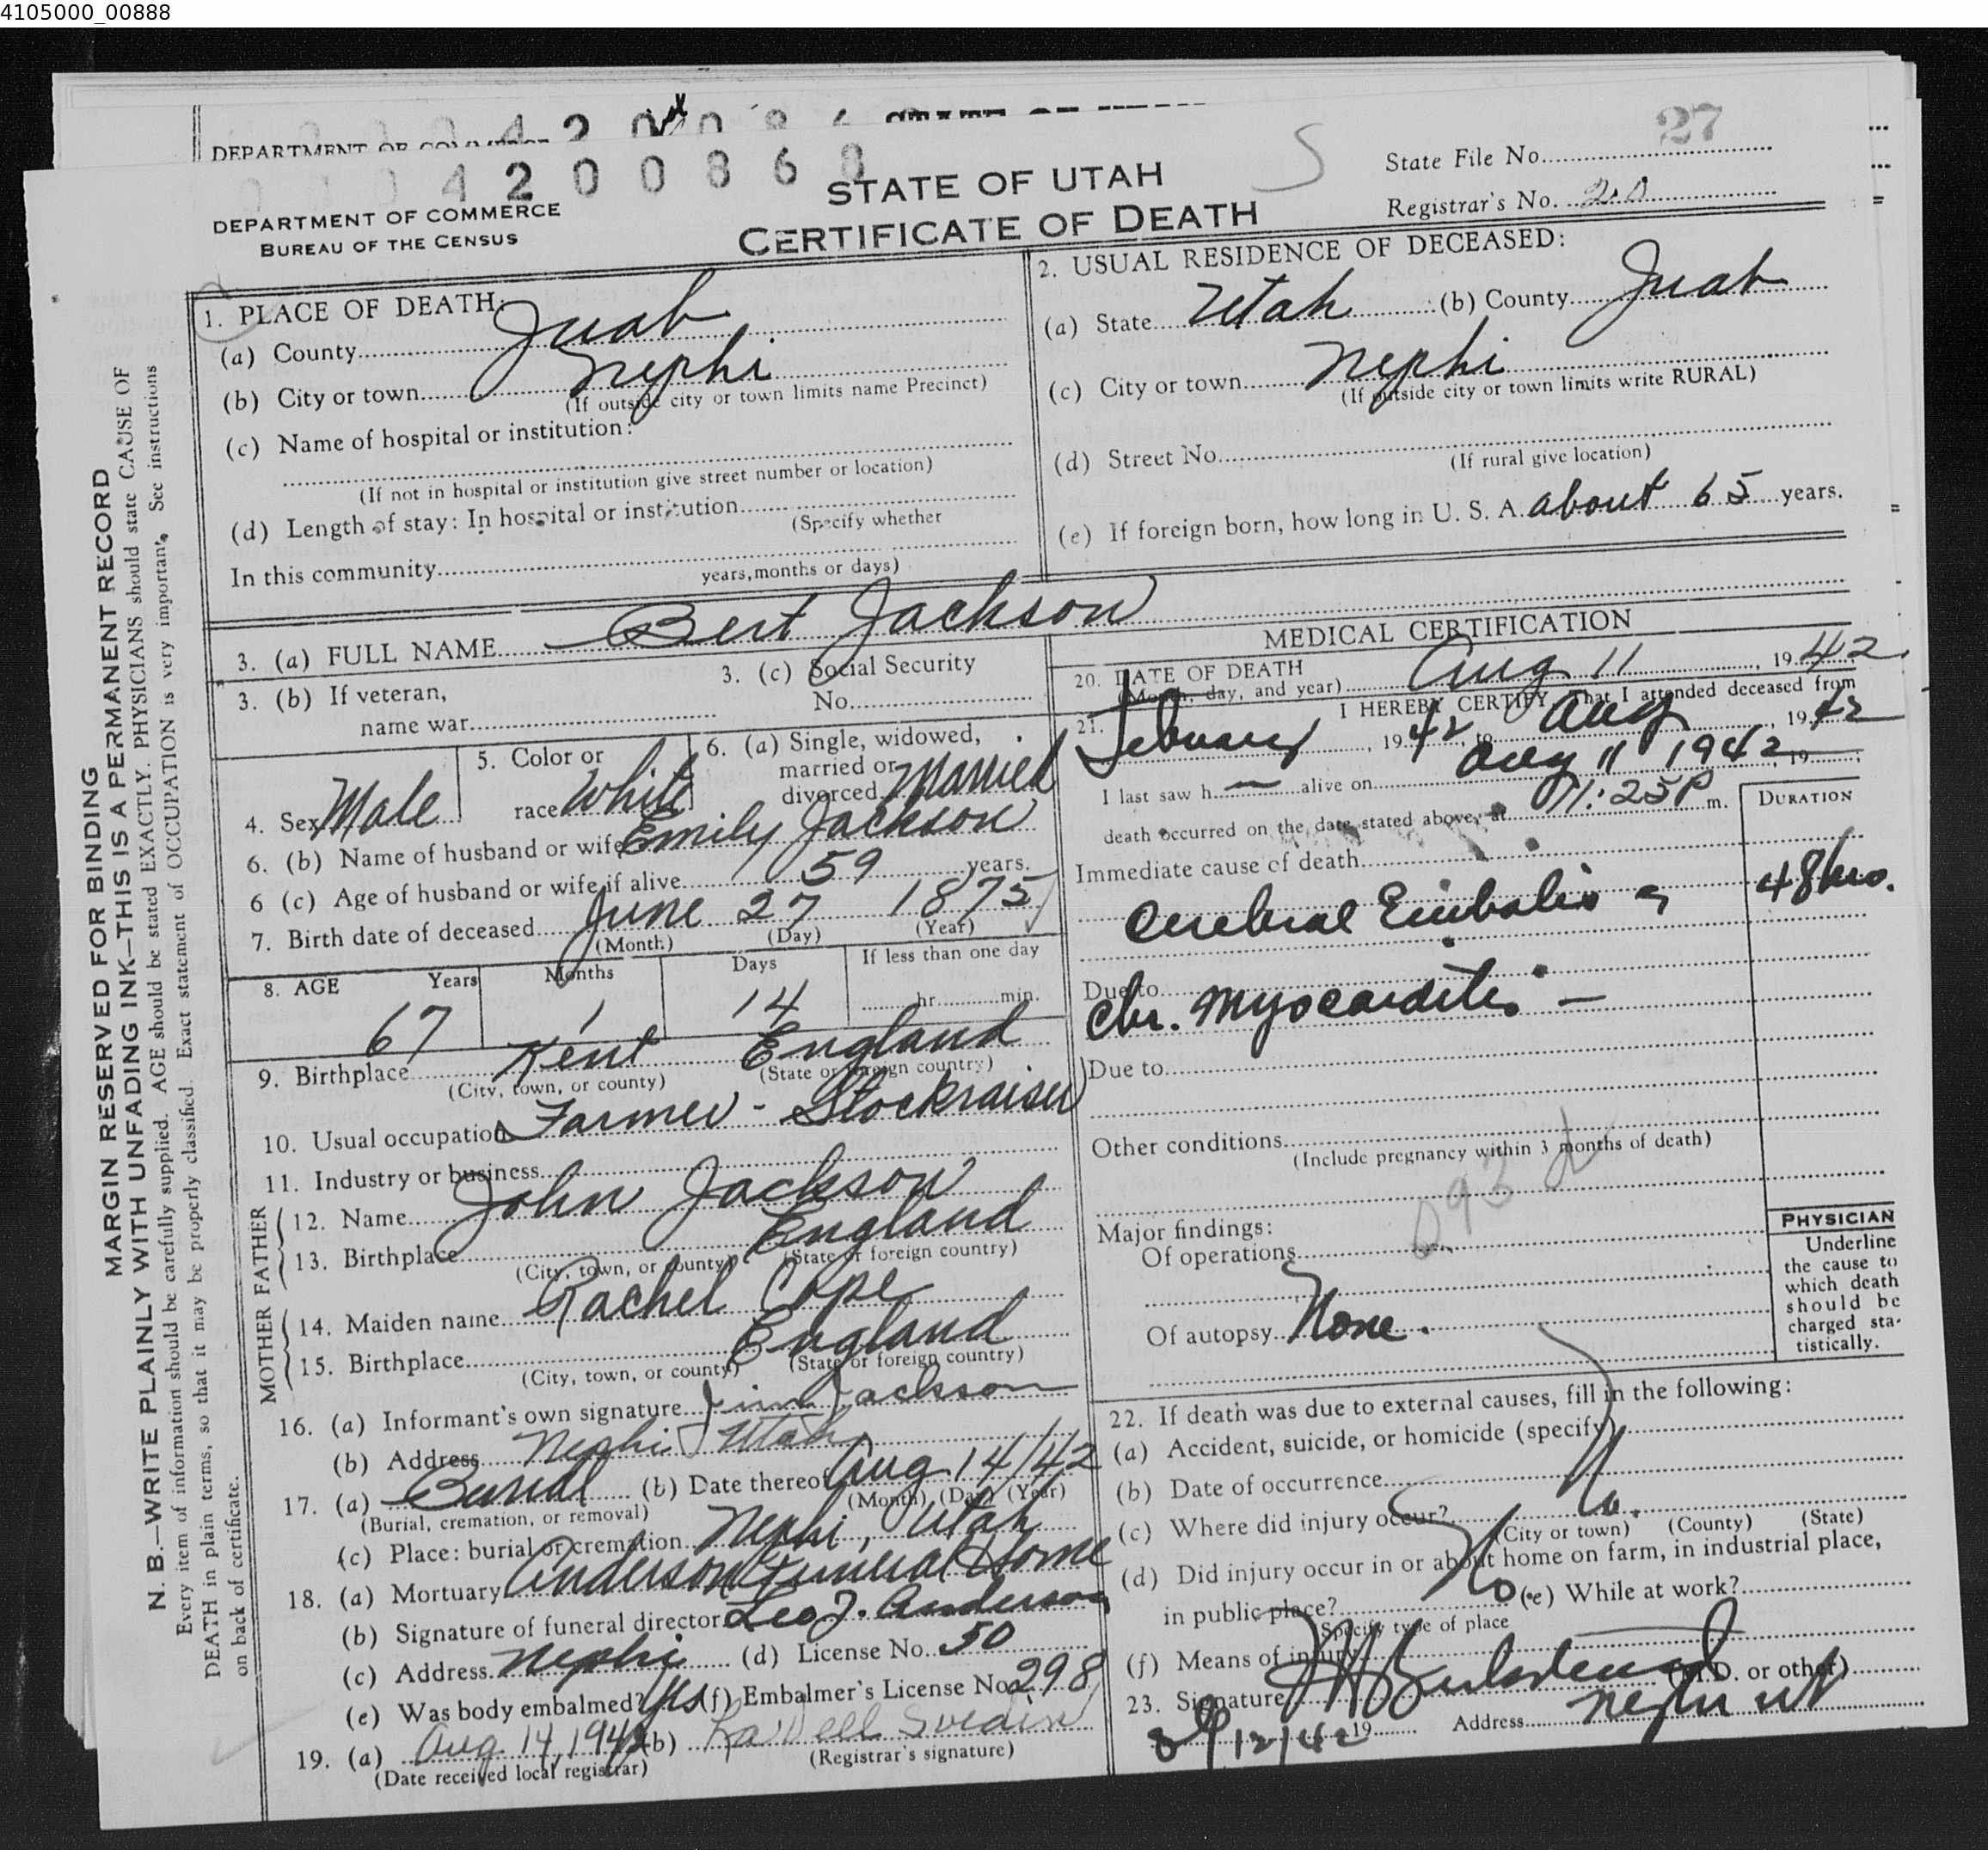 4105000_00888
DEPARTMENT OF COMMERCE
4 2 0 0 8 6 8
STATE OF UTAH
CERTIFICATE OF DEATH
DEPARTMENT OF COMMERCE
BUREAU OF THE CENSUS
State File No. 27
Registrar's No. 20
MARGIN RESERVED FOR BINDING
N. B.—WRITE PLAINLY WITH UNFADING INK—THIS IS A PERMANENT RECORD
Every item of information should be carefully supplied. AGE should be stated EXACTLY. PHYSICIANS should state CAUSE OF
DEATH in plain terms, so that it may be properly classified. Exact statement of OCCUPATION is very important. See instructions
on back of certificate.
1. PLACE OF DEATH:
(a) County Juab
(b) City or town Nephi
(If outside city or town limits name Precinct)
(c) Name of hospital or institution:
(If not in hospital or institution give street number or location)
(d) Length of stay: In hospital or institution
(Specify whether
In this community
years, months or days)
2. USUAL RESIDENCE OF DECEASED:
(a) State Utah (b) County Juab
(c) City or town Nephi
(If outside city or town limits write RURAL)
(d) Street No.
(If rural give location)
(e) If foreign born, how long in U. S. A. about 65 years.
3. (a) FULL NAME Bert Jackson
3. (b) If veteran,
name war
3. (c) Social Security
No.
4. Sex Male
5. Color or
race White
6. (a) Single, widowed,
married or
divorced Married
6. (b) Name of husband or wife Emily Jackson
6 (c) Age of husband or wife if alive 59 years.
7. Birth date of deceased June 27 1875
(Month) (Day) (Year)
8. AGE Years Months Days If less than one day
67 1 14 hr. min.
9. Birthplace Kent England
(City, town, or county) (State or foreign country)
10. Usual occupation Farmer - Stockraiser
11. Industry or business
FATHER
12. Name John Jackson
13. Birthplace England
(City, town, or county) (State or foreign country)
MOTHER
14. Maiden name Rachel Cope
15. Birthplace England
(City, town, or county) (State or foreign country)
16. (a) Informant's own signature Jim Jackson
(b) Address Nephi Utah
17. (a) Burial (b) Date thereof Aug 14/42
(Burial, cremation, or removal) (Month) (Day) (Year)
(c) Place: burial or cremation Nephi, Utah
18. (a) Mortuary Anderson Funeral Home
(b) Signature of funeral director Leo J. Anderson
(c) Address Nephi (d) License No. 50
(e) Was body embalmed? Yes (f) Embalmer's License No. 298
19. (a) Aug 14, 1942 (b)
(Date received local registrar) (Registrar's signature)
MEDICAL CERTIFICATION
20. DATE OF DEATH
(Month, day, and year) Aug 11, 1942
21. I HEREBY CERTIFY, That I attended deceased from
Febuary, 1942, to Aug, 1942
I last saw h— alive on Aug 11 1942, 19
death occurred on the date stated above, at 11:25P m.
DURATION
Immediate cause of death
Cerebral Embolis 48 hrs.
Due to
Chr. Myocarditis —
Due to
Other conditions
(Include pregnancy within 3 months of death)
093 d
Major findings:
Of operations
Of autopsy None.
PHYSICIAN
Underline
the cause to
which death
should be
charged sta-
tistically.
22. If death was due to external causes, fill in the following:
(a) Accident, suicide, or homicide (specify)
(b) Date of occurrence
(c) Where did injury occur? No.
(City or town) (County) (State)
(d) Did injury occur in or about home on farm, in industrial place,
in public place? No (e) While at work?
Specify type of place
(f) Means of injury
23. Signature (M.D. or other)
8/12/42 19 Address Nephi Ut